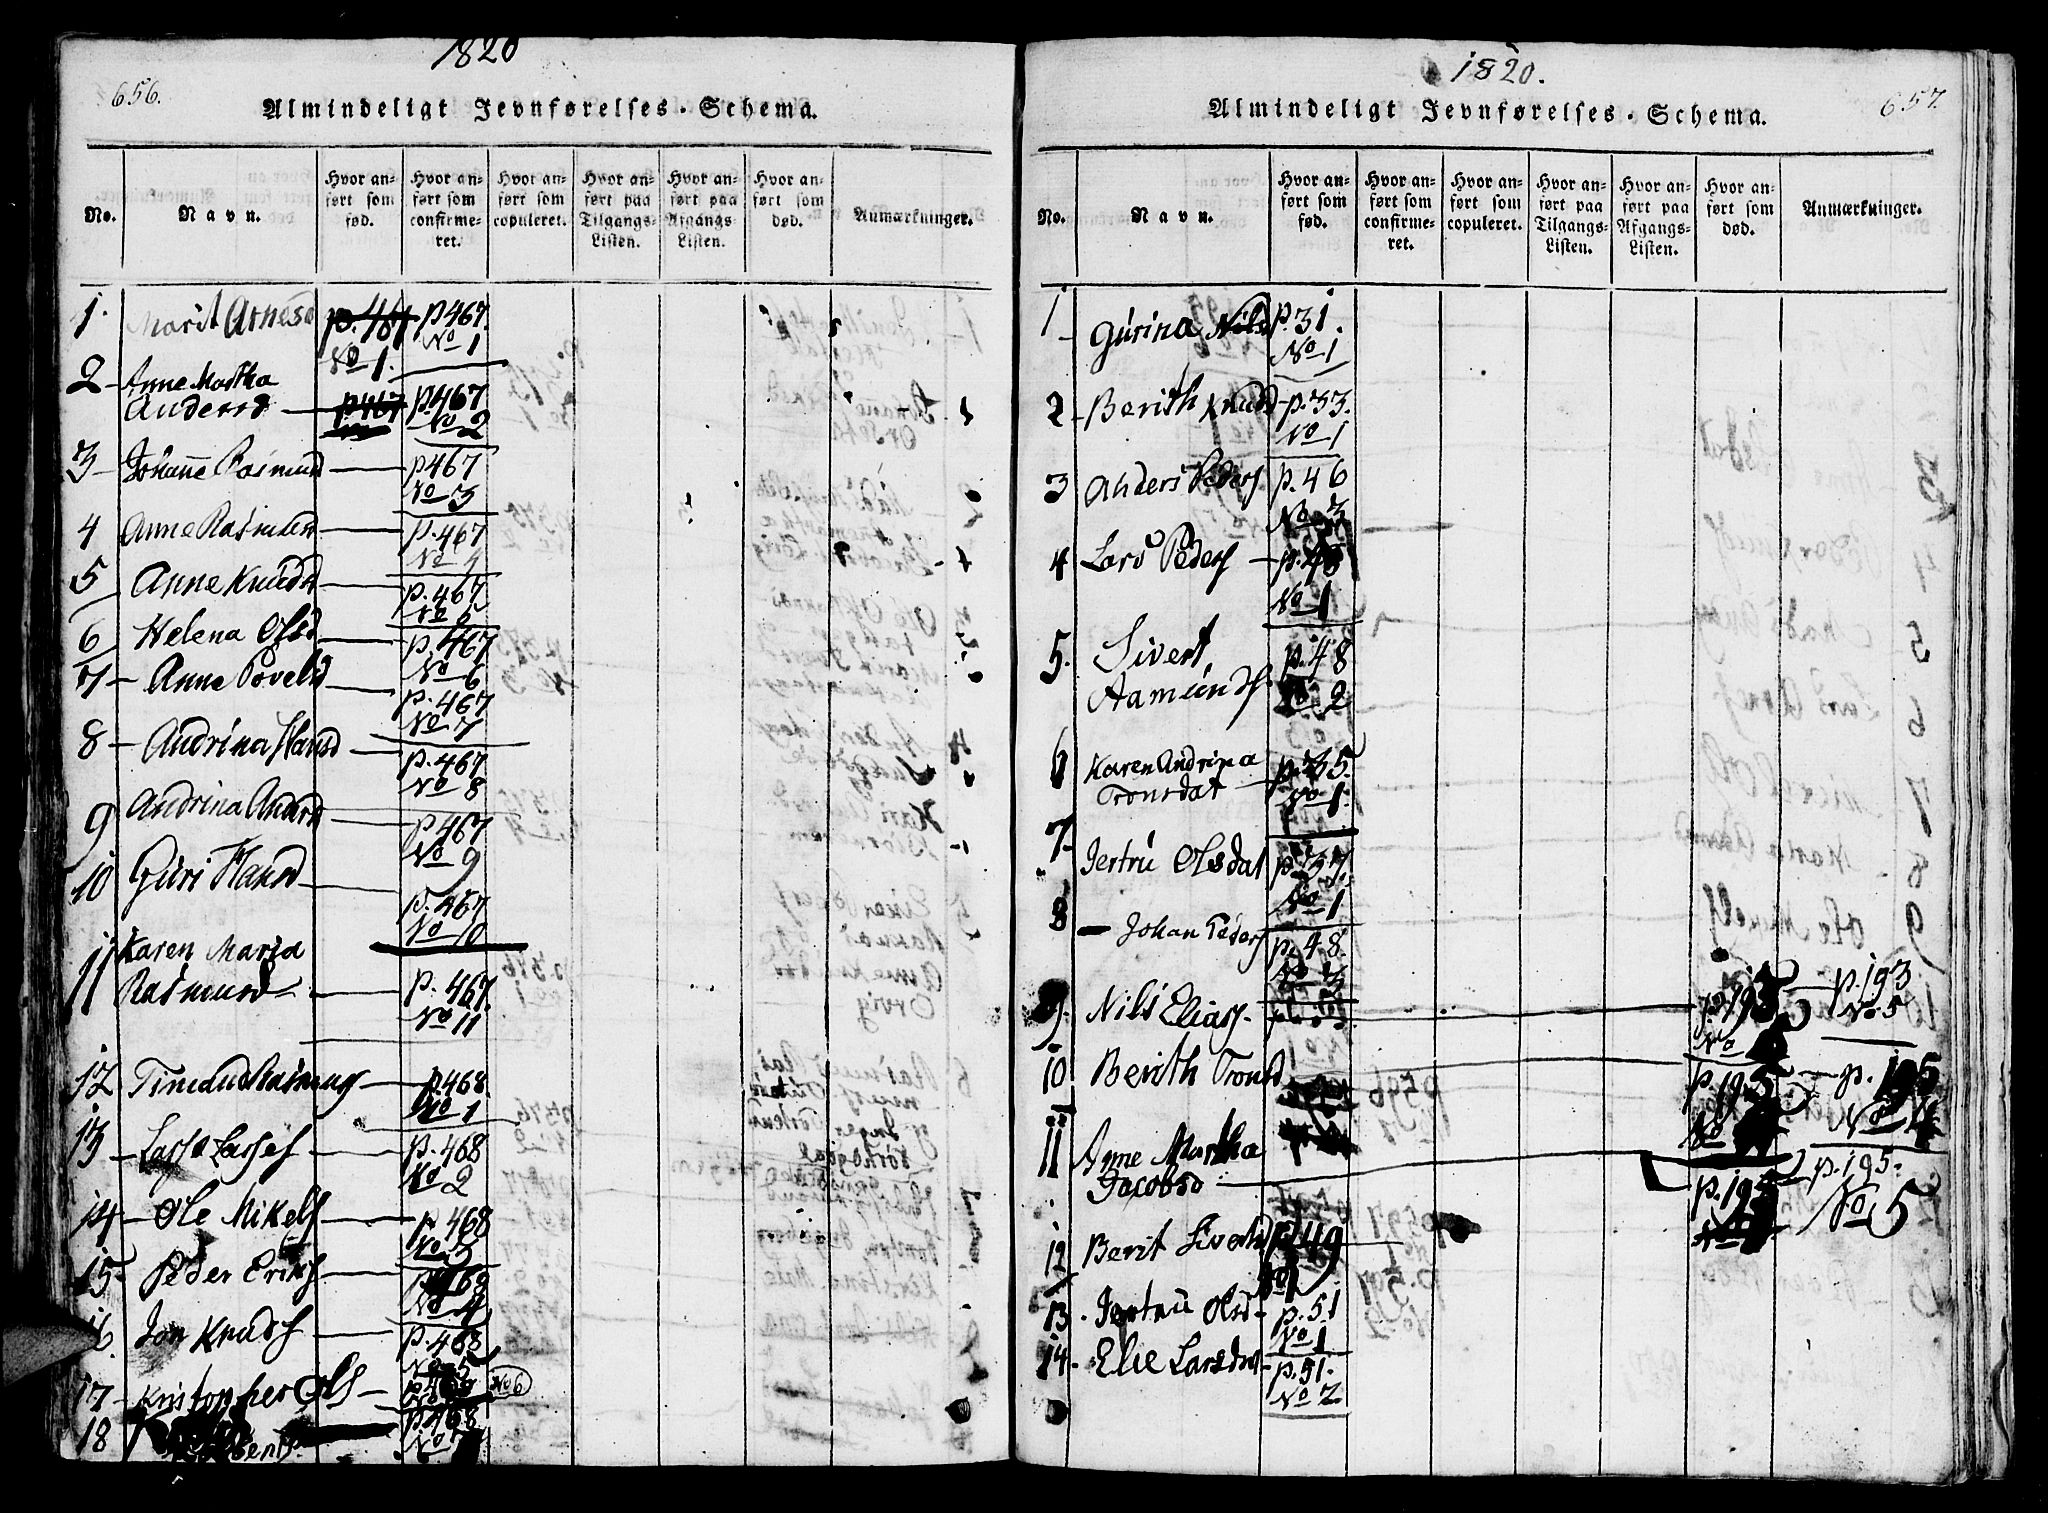 1820
656.
Almindeligt Jevnførelses-Schema.
No.
Navn.
Hvor an-
ført som
fød.
Hvor an-
ført som
confirme-
ret.
Hvor an-
ført som
copuleret.
Hvor an-
ført paa
Tilgangs-
Listen.
Hvor an-
ført paa
Afgangs-
Listen.
Hvor an-
ført som
død.
Anmærkninger.
1. Marit Arnesd p. 467 p 467.
No 1. No 1
2 - Anne Martha
Andersd p 467 p. 467
No 2
3 - Johañe Rasmusd p 467
No 3
4 Anne Rasmusd p. 467
No 4
5 Anne Knudsd
p. 467
6 Helena Olsd p. 467
No 6
7 - Anne Povelsd p. 467
No 7
8 - Andrina Hansd p. 467
No 8
9 Andrina Andersd p 467
No 9
10 Guri Hansd
p. 467
No 10
11 Karen Maria
Rasmusd p. 467.
No 11
12 p 468
No 1
13 - Lasse Lasses p. 468
No 2
14 - Ole Mikels p 468
No 3
15 Peder Eriks 468
No 4
16. Jon Knuds p. 468
No 5
17 - Kristopher Ols No 6
18 p 468
1820.
657.
Almindeligt Jevnførelses-Schema.
No.
Navn.
Hvor an-
ført som
fød.
Hvor an-
ført som
confirme-
ret.
Hvor an-
ført som
copuleret.
Hvor an-
ført paa
Tilgangs-
Listen.
Hvor an-
ført paa
Afgangs-
Listen.
Hvor an-
ført som
død.
Anmærkninger.
1 - Gurina Nilsd p. 31.
No 1
2 - Berith Knudsd - p. 33.
No 1
3 Anders Peders p. 46
No 3
4 Lars Peders - p. 48
No 1
5. Sivert p. 48
Aamunds 2
6 Karen Andrina p. 35.
Tronsdat No 1.
7 - Jertru Olsdat p. 37.
No 1
8 - Johan Peders p. 48.
No 3
9. Nils Elias. p. 193 p. 193
No No 5
10 Berith Tronsd p. 195 p. 195
No No 4
11 Anne Martha
Jacobsd p. 195 p. 195.
No 5
12 Berit Sivertsd p. 49
No 1
13. Jertru Olsd - p. 51
No 1
14 - Elie Larsdat - p. 51.
No 2